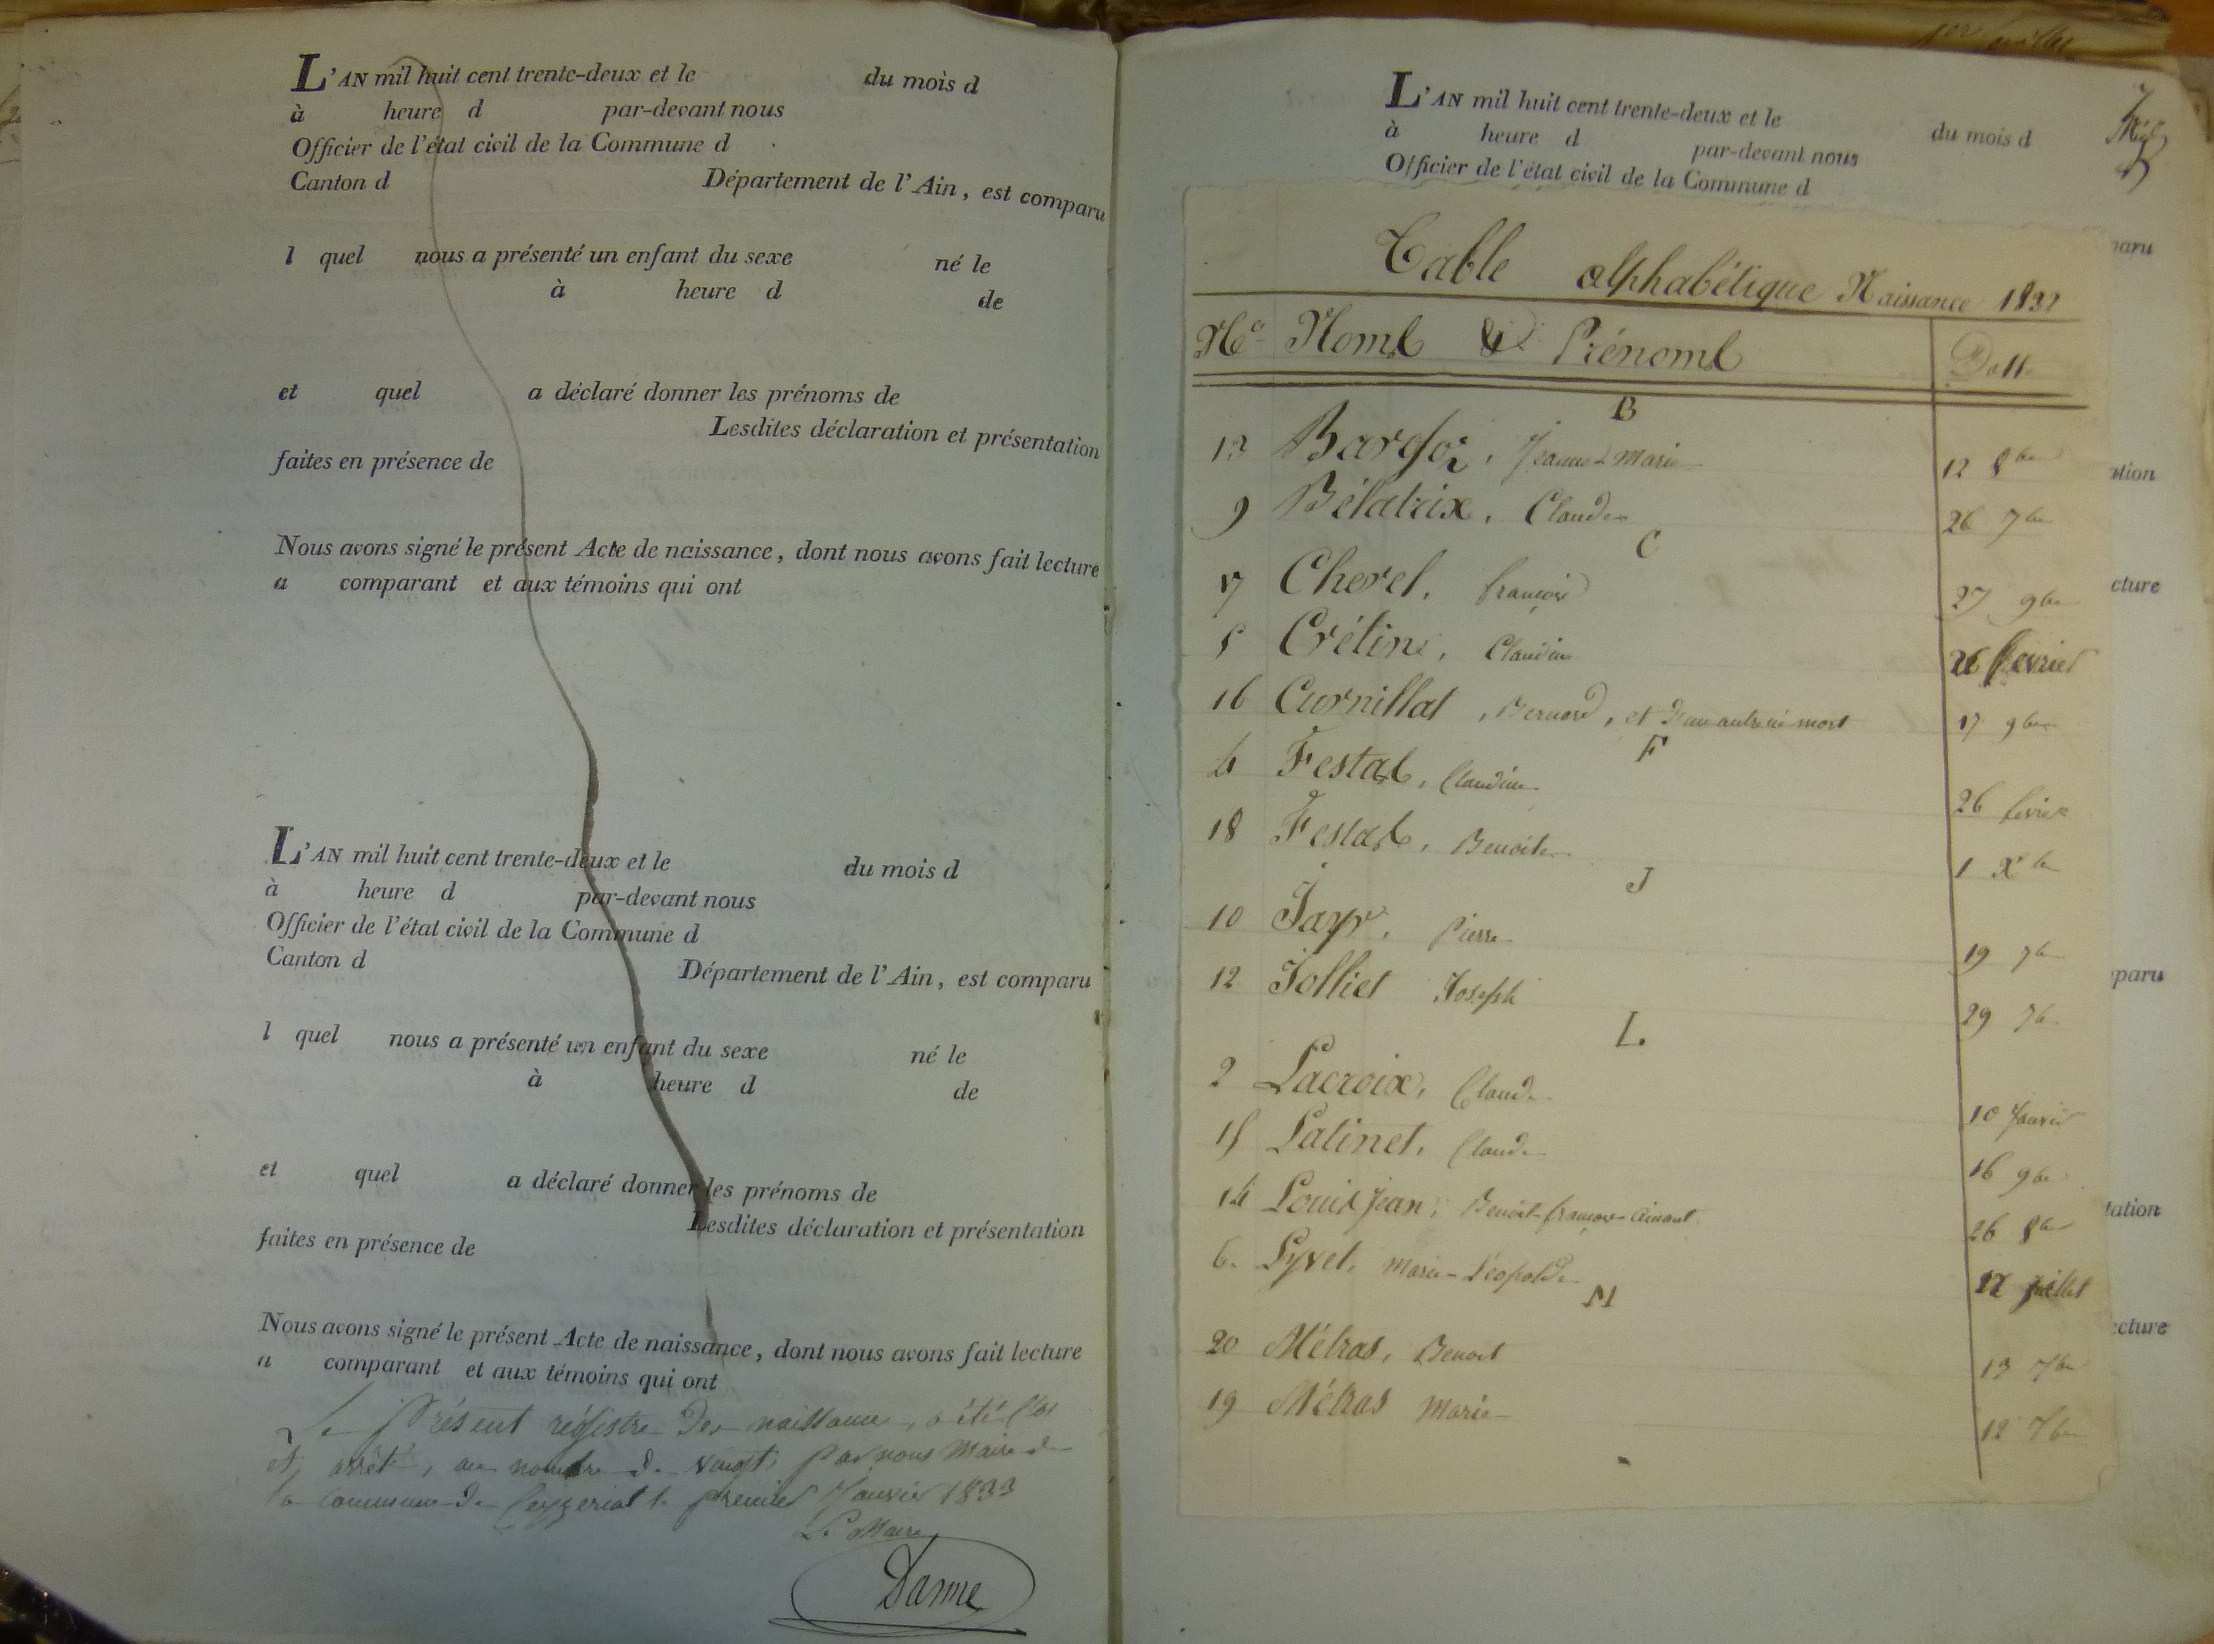 L'AN mil huit cent trente-deux et le du mois d
à heure d par-devant nous
Officier de l'état civil de la Commune d
Canton d Département de l'Ain, est comparu
l quel nous a présenté un enfant du sexe né le
à heure d de
et quel a déclaré donner les prénoms de
Lesdites déclaration et présentation
faites en présence de
Nous avons signé le présent Acte de naissance, dont nous avons fait lecture
a comparant et aux témoins qui ont
L'AN mil huit cent trente-deux et le du mois d
à heure d par-devant nous
Officier de l'état civil de la Commune d
Canton d Département de l'Ain, est comparu
l quel nous a présenté un enfant du sexe né le
à heure d de
et quel a déclaré donner les prénoms de
Lesdites déclaration et présentation
faites en présence de
Nous avons signé le présent Acte de naissance, dont nous avons fait lecture
a comparant et aux témoins qui ont
Le Présent régistre des naissances, a été clos
et arrêté, au nombre de vingt par nous Maire de
la commune de Ceyzeriat le premier Janvier 1833
Le Maire
Darme
L'AN mil huit cent trente-deux et le du mois d
à heure d par-devant nous
Officier de l'état civil de la Commune d
paru
Table alphabétique Naissance 1832
Nos Noms & Prénoms Date
B
13 Bargoz, Jeanne-Marie 12 8bre
9 Bélatrix, Claude 26 7bre
C
17 Cherel, françois 27 9bre
5 Crétin, Claudine 26 fevrier
16 Curnillat, Bernard, et d'un autre né mort 17 9bre
F
4 Festas, Claudine 26 fevrier
18 Festas, Benoite 1 Xbre
J
10 Jayr, Pierre 19 7bre
12 Jolliet Joseph 29 7bre
L.
2 Lacroix, Claude 10 Janvier
15 Latinet, Claude 16 9bre
14 Louis Jean, Benoit-françois- 26 8bre
6 Lyvet, Marie-Léopolde 17 juillet
M
20 Métras, Benoit 13 7bre
19 Métras Marie 12 7bre
ation
cture
paru
tation
cture